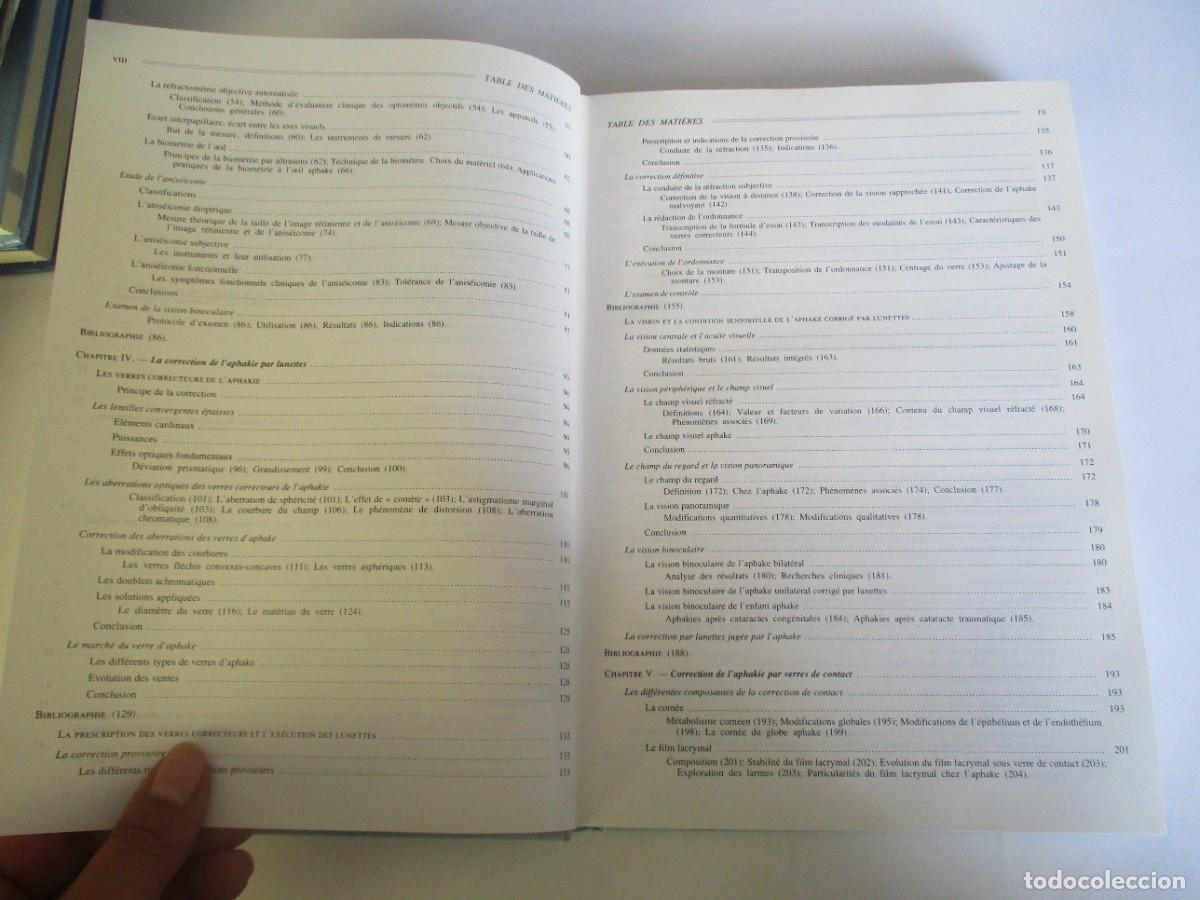 VIII TABLE DES MATIÈRES
La réfractométrie objective automatisée
Classification (54); Méthode d'évaluation clinique des optomètres objectifs (54); Les appareils (55);
Conclusions générales (60).
Ecart interpupillaire, écart entre les axes visuels
But de la mesure, définitions (60); Les instruments de mesure (62).
La biométrie de l'œil
Principes de la biométrie par ultrasons (62); Technique de la biométrie. Choix du matériel (64); Applications
pratiques de la biométrie à l'œil aphake (66).
Etude de l'aniséiconie
Classifications
L'aniséiconie dioptrique
Mesure théorique de la taille de l'image rétinienne et de l'aniséiconie (69); Mesure objective de la taille de
l'image rétinienne et de l'aniséiconie (74).
L'aniséiconie subjective
Les instruments et leur utilisation (77).
L'aniséiconie fonctionnelle
Les symptômes fonctionnels cliniques de l'aniséiconie (83); Tolérance de l'aniséiconie (83).
Conclusions
Examen de la vision binoculaire
Protocole d'examen (86); Utilisation (86); Résultats (86); Indications (86).
BIBLIOGRAPHIE (86).
CHAPITRE IV. — La correction de l'aphakie par lunettes
LES VERRES CORRECTEURS DE L'APHAKIE
Principe de la correction
Les lentilles convergentes épaisses
Eléments cardinaux
Puissances
Effets optiques fondamentaux
Déviation prismatique (96); Grandissement (99); Conclusion (100).
Les aberrations optiques des verres correcteurs de l'aphakie
Classification (101); L'aberration de sphéricité (101); L'effet de « comète » (103); L'astigmatisme marginal
d'obliquité (103); La courbure du champ (106); Le phénomène de distorsion (108); L'aberration
chromatique (108).
Correction des aberrations des verres d'aphake
La modification des courbures
Les verres fléchis convexes-concaves (111); Les verres asphériques (113).
Les doublets achromatiques 115
Les solutions appliquées 115
Le diamètre du verre (116); Le matériau du verre (124).
Conclusion
Le marché du verre d'aphake
Les différents types de verres d'aphake
Evolution des ventes
Conclusion 129
BIBLIOGRAPHIE (129).
LA PRESCRIPTION DES VERRES CORRECTEURS ET L'EXÉCUTION DES LUNETTES 132
La correction provisoire 133
Les différents provisoires 133
TABLE DES MATIÈRES IX
Prescription et indications de la correction provisoire 135
Conduite de la réfraction (135); Indications (136).
Conclusion 136
La correction définitive 137
La conduite de la réfraction subjective 137
Correction de la vision à distance (138); Correction de la vision rapprochée (141); Correction de l'aphake
malvoyant (142).
La rédaction de l'ordonnance 143
Transcription de la formule d'essai (143); Transcription des modalités de l'essai (143); Caractéristiques des
verres correcteurs (144).
Conclusion 150
L'exécution de l'ordonnance 151
Choix de la monture (151); Transposition de l'ordonnance (151); Centrage du verre (153); Ajustage de la
monture (153).
L'examen de contrôle 154
BIBLIOGRAPHIE (155).
LA VISION ET LA CONDITION SENSORIELLE DE L'APHAKE CORRIGÉ PAR LUNETTES 158
La vision centrale et l'acuité visuelle 160
Données statistiques 161
Résultats bruts (161); Résultats intégrés (163).
Conclusion 163
La vision périphérique et le champ visuel 164
Le champ visuel réfracté 164
Définitions (164); Valeur et facteurs de variation (166); Contenu du champ visuel réfracté (168);
Phénomènes associés (169).
Le champ visuel aphake 170
Conclusion 171
Le champ du regard et la vision panoramique 172
Le champ du regard 172
Définition (172); Chez l'aphake (172); Phénomènes associés (174); Conclusion (177).
La vision panoramique 178
Modifications quantitatives (178); Modifications qualitatives (178).
Conclusion 179
La vision binoculaire 180
La vision binoculaire de l'aphake bilatéral 180
Analyse des résultats (180); Recherches cliniques (181).
La vision binoculaire de l'aphake unilatéral corrigé par lunettes 183
La vision binoculaire de l'enfant aphake 184
Aphakies après cataractes congénitales (184); Aphakies après cataracte traumatique (185).
La correction par lunettes jugée par l'aphake 185
BIBLIOGRAPHIE (188).
CHAPITRE V. — Correction de l'aphakie par verres de contact 193
Les différentes composantes de la correction de contact 193
La cornée 193
Métabolisme cornéen (193); Modifications globales (195); Modifications de l'épithélium et de l'endothélium
(198); La cornée du globe aphake (199).
Le film lacrymal 201
Composition (201); Stabilité du film lacrymal (202); Evolution du film lacrymal sous verre de contact (203);
Exploration des larmes (203); Particularités du film lacrymal chez l'aphake (204).
todocoleccion